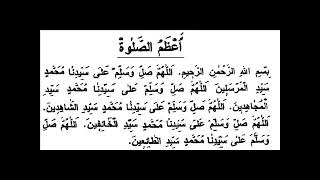 أَعْظَمُ الصَّلٰوةْ
بِسْمِ اللهِ الرَّحْمٰنِ الرَّحِيْمِ. اَللّٰهُمَّ صَلِّ وَسَلِّمْ عَلَى سَيِّدِنَا مُحَمَّدٍ
سَيِّدِ الْمُرْسَلِيْنَ. اَللّٰهُمَّ صَلِّ وَسَلِّمْ عَلَى سَيِّدِنَا مُحَمَّدٍ سَيِّدِ
الْمُجَاهِدِيْنَ. اَللّٰهُمَّ صَلِّ وَسَلِّمْ عَلَى سَيِّدِنَا مُحَمَّدٍ سَيِّدِ الشَّاهِدِيْنَ.
اَللّٰهُمَّ صَلِّ وَسَلِّمْ عَلَى سَيِّدِنَا مُحَمَّدٍ سَيِّدِ الْخَائِفِيْنَ. اَللّٰهُمَّ صَلِّ
وَسَلِّمْ عَلَى سَيِّدِنَا مُحَمَّدٍ سَيِّدِ الطَّائِعِيْنَ.